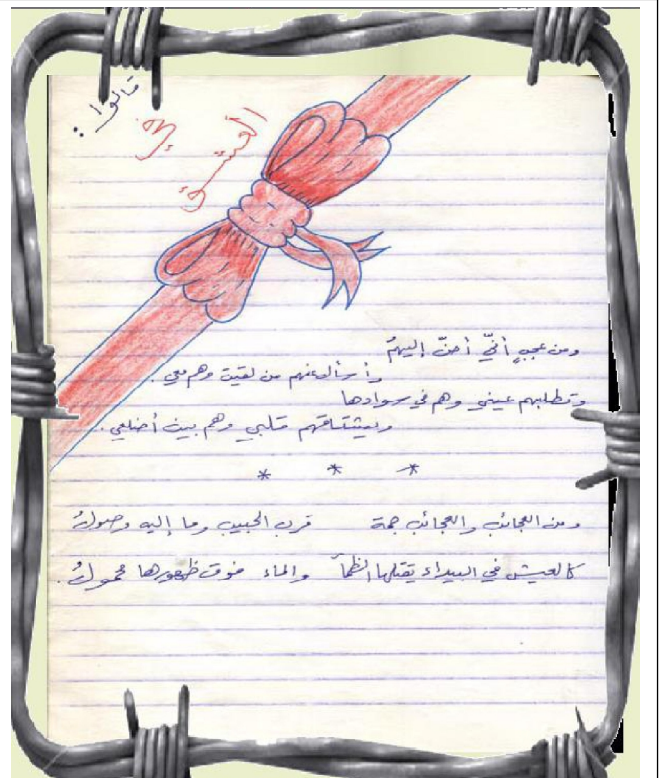 قالوا :
في
العشق
ومن عجبٍ أنّي أحنّ إليهمُ
وأسأل عنهم من لقيت وهم معي .
وتطلبهم عيني وهم في سوادها
ويشتاقهم قلبي وهم بين أضلعي .
* * *
ومن العجائب والعجائب جمة قرب الحبيب وما إليه وصولُ
كالعيس في البيداء يقتلها الظمأ والماء فوق ظهورها محمولُ .